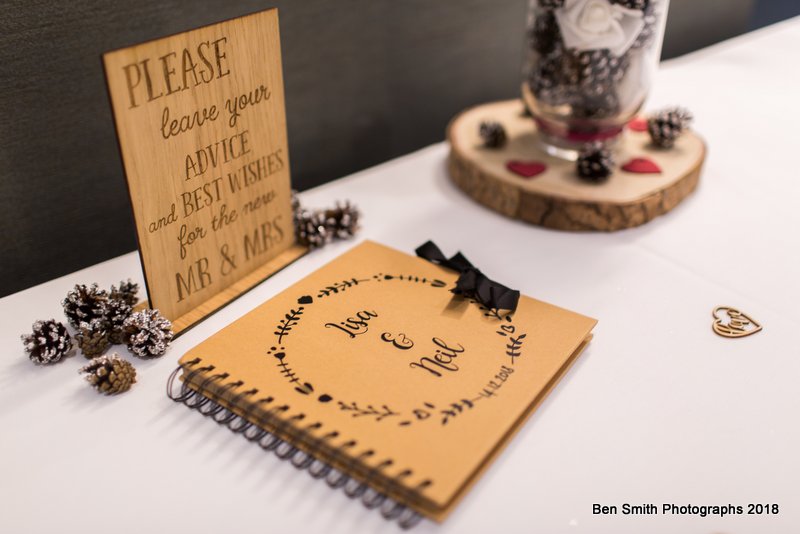 PLEASE
leave your
ADVICE
and BEST WISHES
for the new
MR & MRS
Lisa
&
Neil
4.12.2018
Ben Smith Photographs 2018